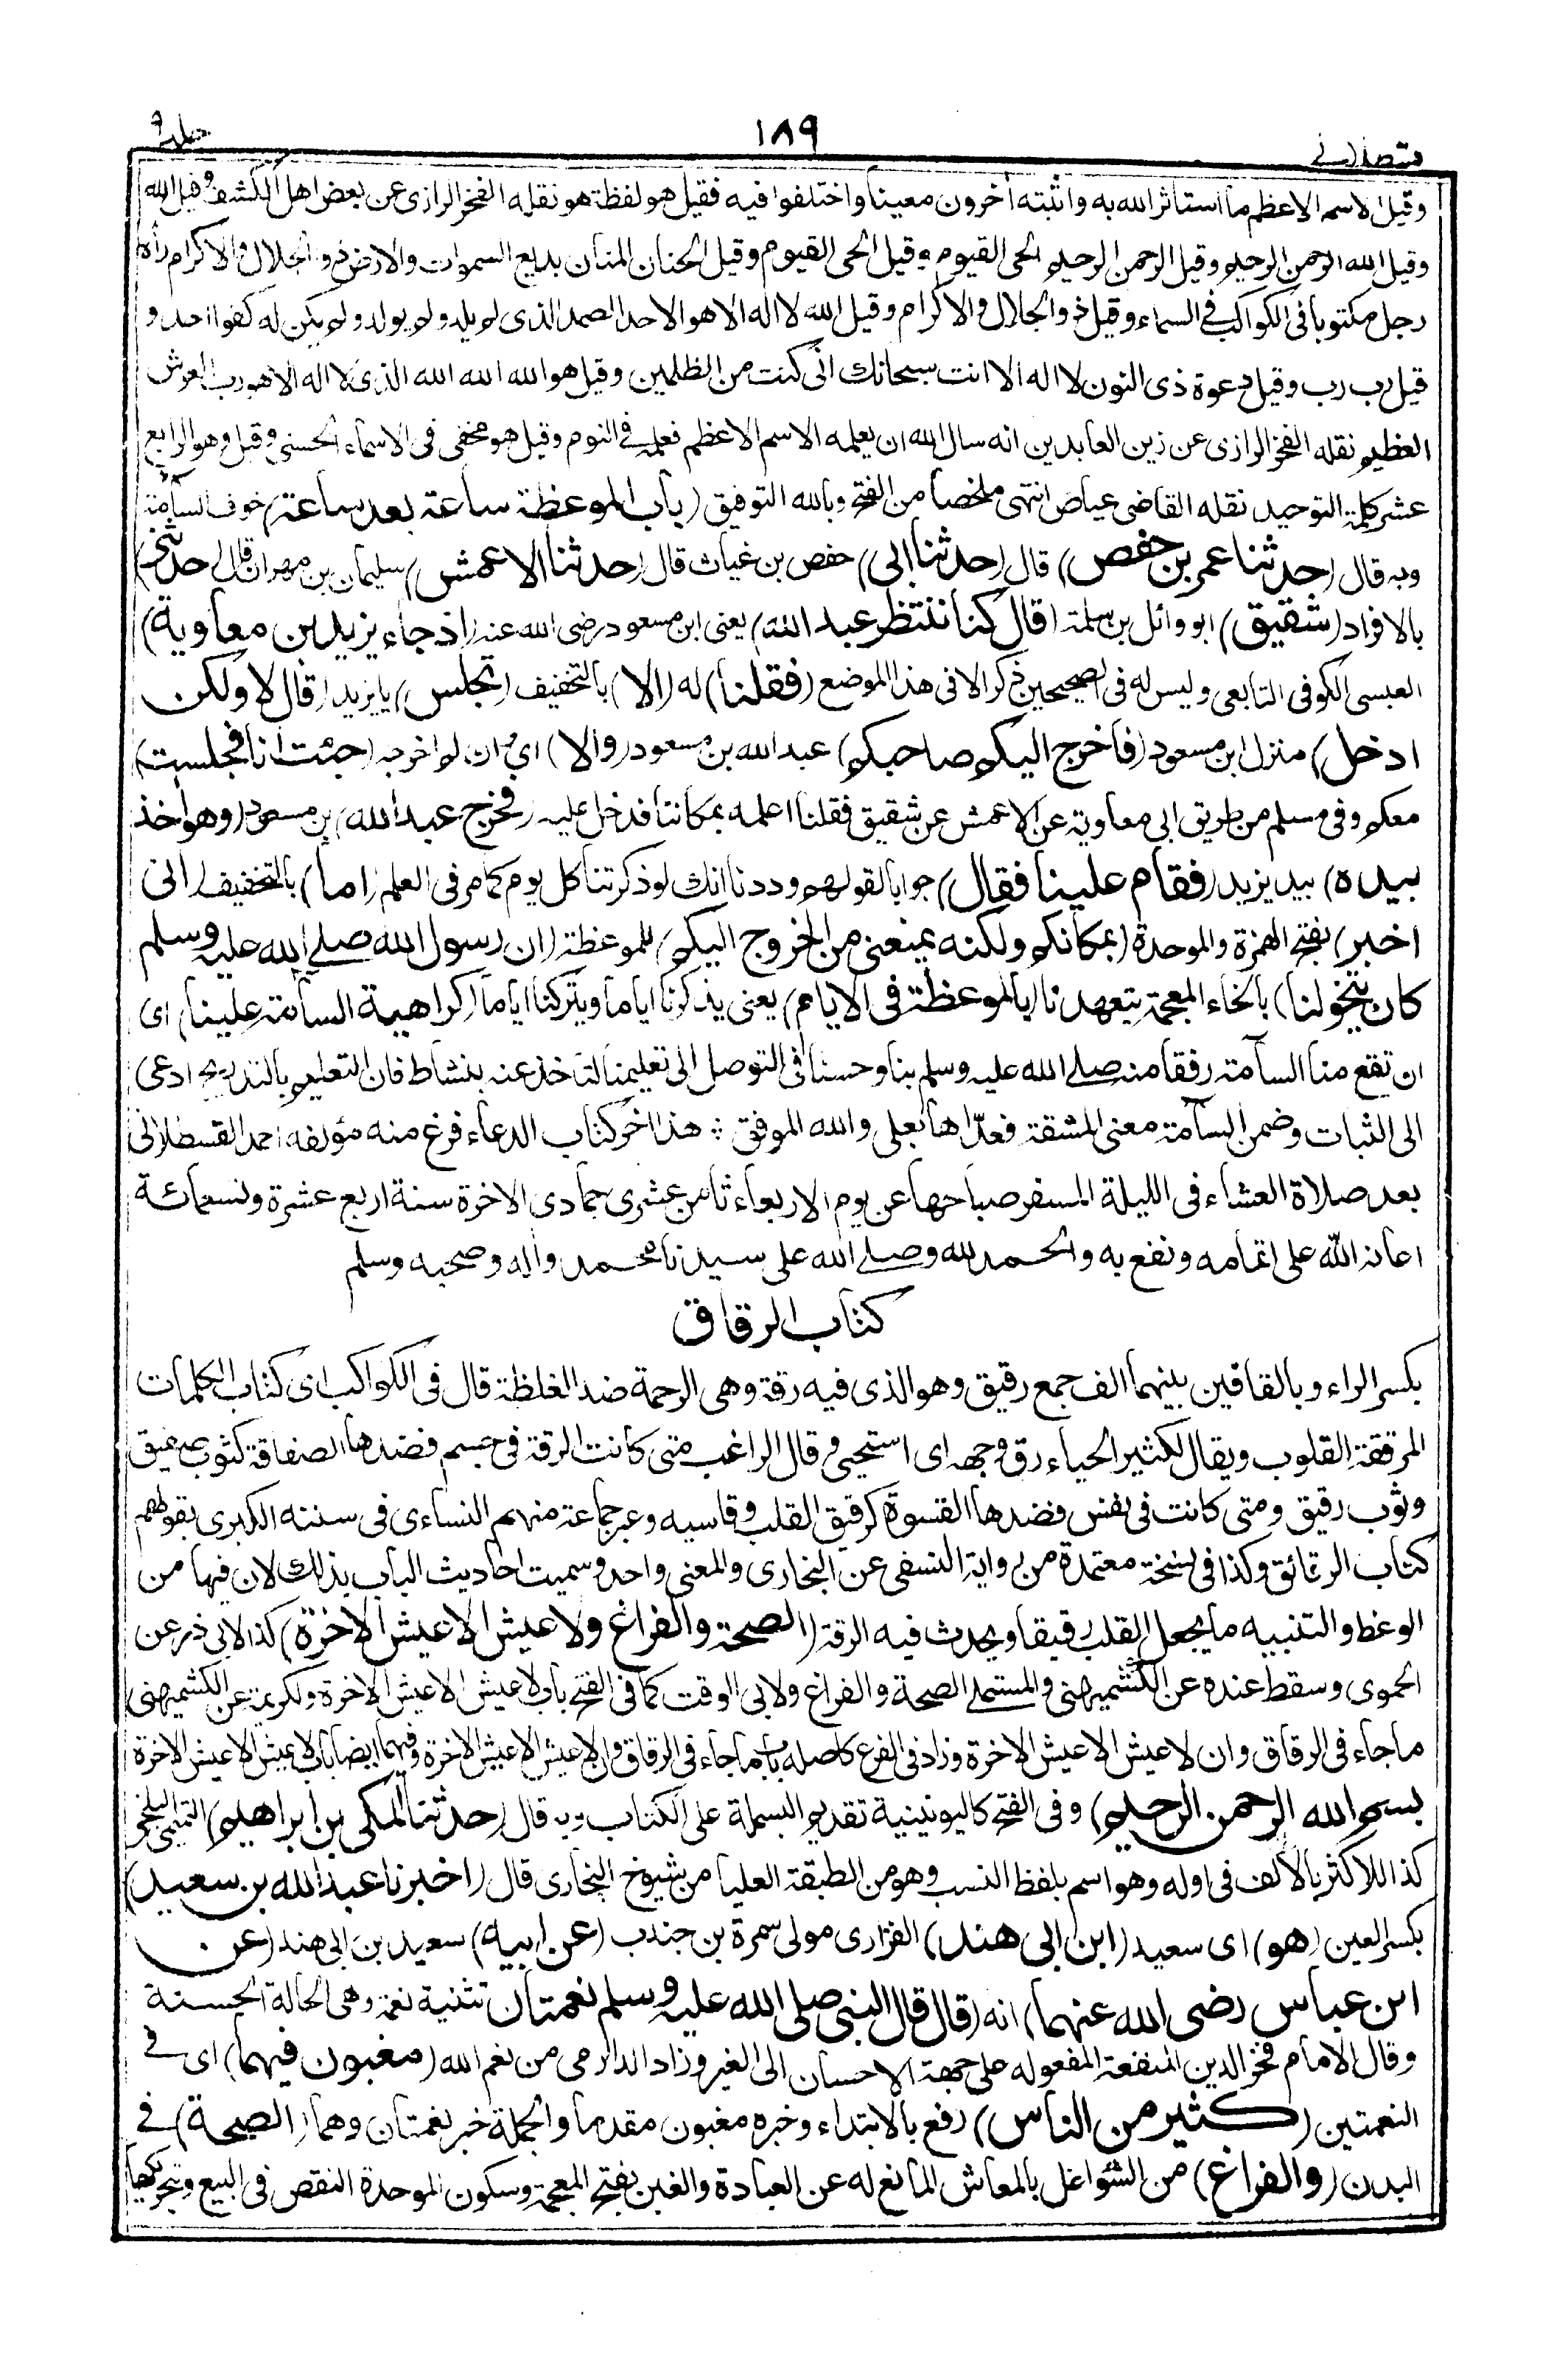 جلد ٩
١٨٩
قسطلانی
وقيل الاسم الاعظم ما استأثر الله به واثبته أخرون معينا واختلفوا فيه فقيل هو لفظة هو نقله الفخر الرازى عن بعض اهل الكشف وقيل الله
وقيل الله الرحمن الرحيم وقيل الرحمن الرحيم الحى القيوم وقيل الحى القيوم وقيل الحنان المنان بديع السموات والارض ذو الجلال والاكرام رأه
رجل مكتوبا فى الكواكب فى السماء وقيل ذو الجلال والاكرام وقيل الله لا اله الا هو الاحد الصمد الذى لم يلد ولم يولد ولم يكن له كفوا احد و
قيل رب رب وقيل دعوة ذى النون لا اله الا انت سبحانك انى كنت من الظلمين وقيل هو الله الله الله الذى لا اله الا هو رب العرش
العظيم نقله الفخر الرازى عن زين العابدين انه سال الله ان يعلمه الاسم الاعظم فعلمه فى النوم وقيل هو مخفى فى الاسماء الحسنى وقيل وهو الرابع
عشر كلمة التوحيد نقله القاضى عياض انتهى ملخصا من الفتح وبالله التوفيق (باب الموعظة ساعة بعد ساعة) خوف السآمة
وبه قال (حدثنا عمر بن حفص) قال (حدثنا ابى) حفص بن غياث قال (حدثنا الاعمش) سليمان بن مهران قال (حدثنى)
بالافراد (شقيق) ابو وائل بن سلمة (قال كنا ننتظر عبد الله) يعنى ابن مسعود رضى الله عنه (اذ جاء يزيد بن معاوية)
العبسى الكوفى التابعى وليس له فى الصحيحين ذكر الا فى هذا الموضع (فقلنا) له (الا) بالتخفيف (تجلس) يا يزيد (قال لا ولكن
ادخل) منزل ابن مسعود (فأخرج اليكم صاحبكم) عبد الله بن مسعود (والا) اى وان لم اخرجه (جئت انا فجلست)
معكم وفى مسلم من طريق ابى معاوية عن الاعمش عن شقيق فقلنا اعلمه بمكاننا فدخل عليه (فخرج عبد الله) بن مسعود (وهو أخذ
بيده) بيد يزيد (فقام علينا فقال) جوابا لقولهم وددنا انك لو ذكرتنا كل يوم كما مر فى العلم (اما) بالتخفيف (انى
اخبر) بفتح الهمزة والموحدة (بمكانكم ولكنه يمنعنى من الخروج اليكم) للموعظة (ان رسول الله صلى الله عليه وسلم
كان يتخولنا) بالخاء المعجمة يتعهدنا (بالموعظة فى الايام) يعنى يذكرنا اياما ويتركنا اياما (كراهية السآمة علينا) اى
ان تقع منا السآمة رفقا منه صلى الله عليه وسلم بنا وحسنا فى التوصل الى تعليمنا لنأخذ عنه بنشاط فان التعليم بالتدريج ادعى
الى الثبات وضمن السآمة معنى المشقة فعدّاها بعلى والله الموفق ÷ هذا أخر كتاب الدعاء فرغ منه مؤلفه احمد القسطلانى
بعد صلاة العشاء فى الليلة المسفر صباحها عن يوم الاربعاء ثامن عشرى جمادى الاخرة سنة اربع عشرة وتسعمائة
اعانه الله على اتمامه ونفع به والحمد لله وصلى الله على سيدنا محمد وأله وصحبه وسلم
كتاب الرقاق
بكسر الراء وبالقافين بينهما الف جمع رقيق وهو الذى فيه رقة وهى الرحمة ضد الغلظة قال فى الكواكب اى كتاب الكلمات
المرققة القلوب ويقال لكثير الحياء رق وجهه اى استحيى وقال الراغب متى كانت الرقة فى جسم فضدها الصفاقة كثوب صفيق
وثوب رقيق ومتى كانت فى نفس فضدها القسوة كرقيق القلب وقاسيه وعبر جماعة منهم النساءى فى سننه الكبرى بقولهم
كتاب الرقائق وكذا فى نسخة معتمدة من رواية النسفى عن البخارى والمعنى واحد وسميت احاديث الباب بذلك لان فيها من
الوعظ والتنبيه ما يجعل القلب رقيقا ويحدث فيه الرقة (الصحة والفراغ ولا عيش الا عيش الاخرة) كذا لابى ذر عن
الحموى وسقط عنده عن الكشميهنى والمستملى الصحة والفراغ ولابى الوقت كما فى الفتح باب لا عيش الا عيش الاخرة ولكريمة عن الكشميهنى
ما جاء فى الرقاق وان لا عيش الا عيش الاخرة وزاد فى الفرع كاصله باب ما جاء فى الرقاق وان لا عيش الا عيش الاخرة وفيهما ايضا باب لا عيش الا عيش الاخرة
بسم الله الرحمن الرحيم) وفى الفتح كاليونينية تقديم البسملة على الكتاب وبه قال (حدثنا المكى بن ابراهيم) التميمى البلخى
كذا للاكثر بالالف فى اوله وهو اسم بلفظ النسب وهو من الطبقة العليا من شيوخ البخارى قال (اخبرنا عبد الله بن سعيد)
بكسر العين (هو) اى سعيد (ابن ابى هند) الفزارى مولى سمرة بن جندب (عن ابيه) سعيد بن ابى هند (عن
ابن عباس رضى الله عنهما) انه (قال قال النبى صلى الله عليه وسلم نعمتان) تثنية نعمة وهى الحالة الحسنة
وقال الامام فخر الدين المنفعة المفعوله على جهة الاحسان الى الغير وزاد الدارمى من نعم الله (مغبون فيهما) اى فى
النعمتين (كثير من الناس) رفع بالابتداء وخبره مغبون مقدما والجملة خبر نعمتان وهما (الصحة) فى
البدن (والفراغ) من الشواغل بالمعاش المانع له عن العبادة والغبن بفتح المعجمة وسكون الموحدة النقص فى البيع وتحريكها